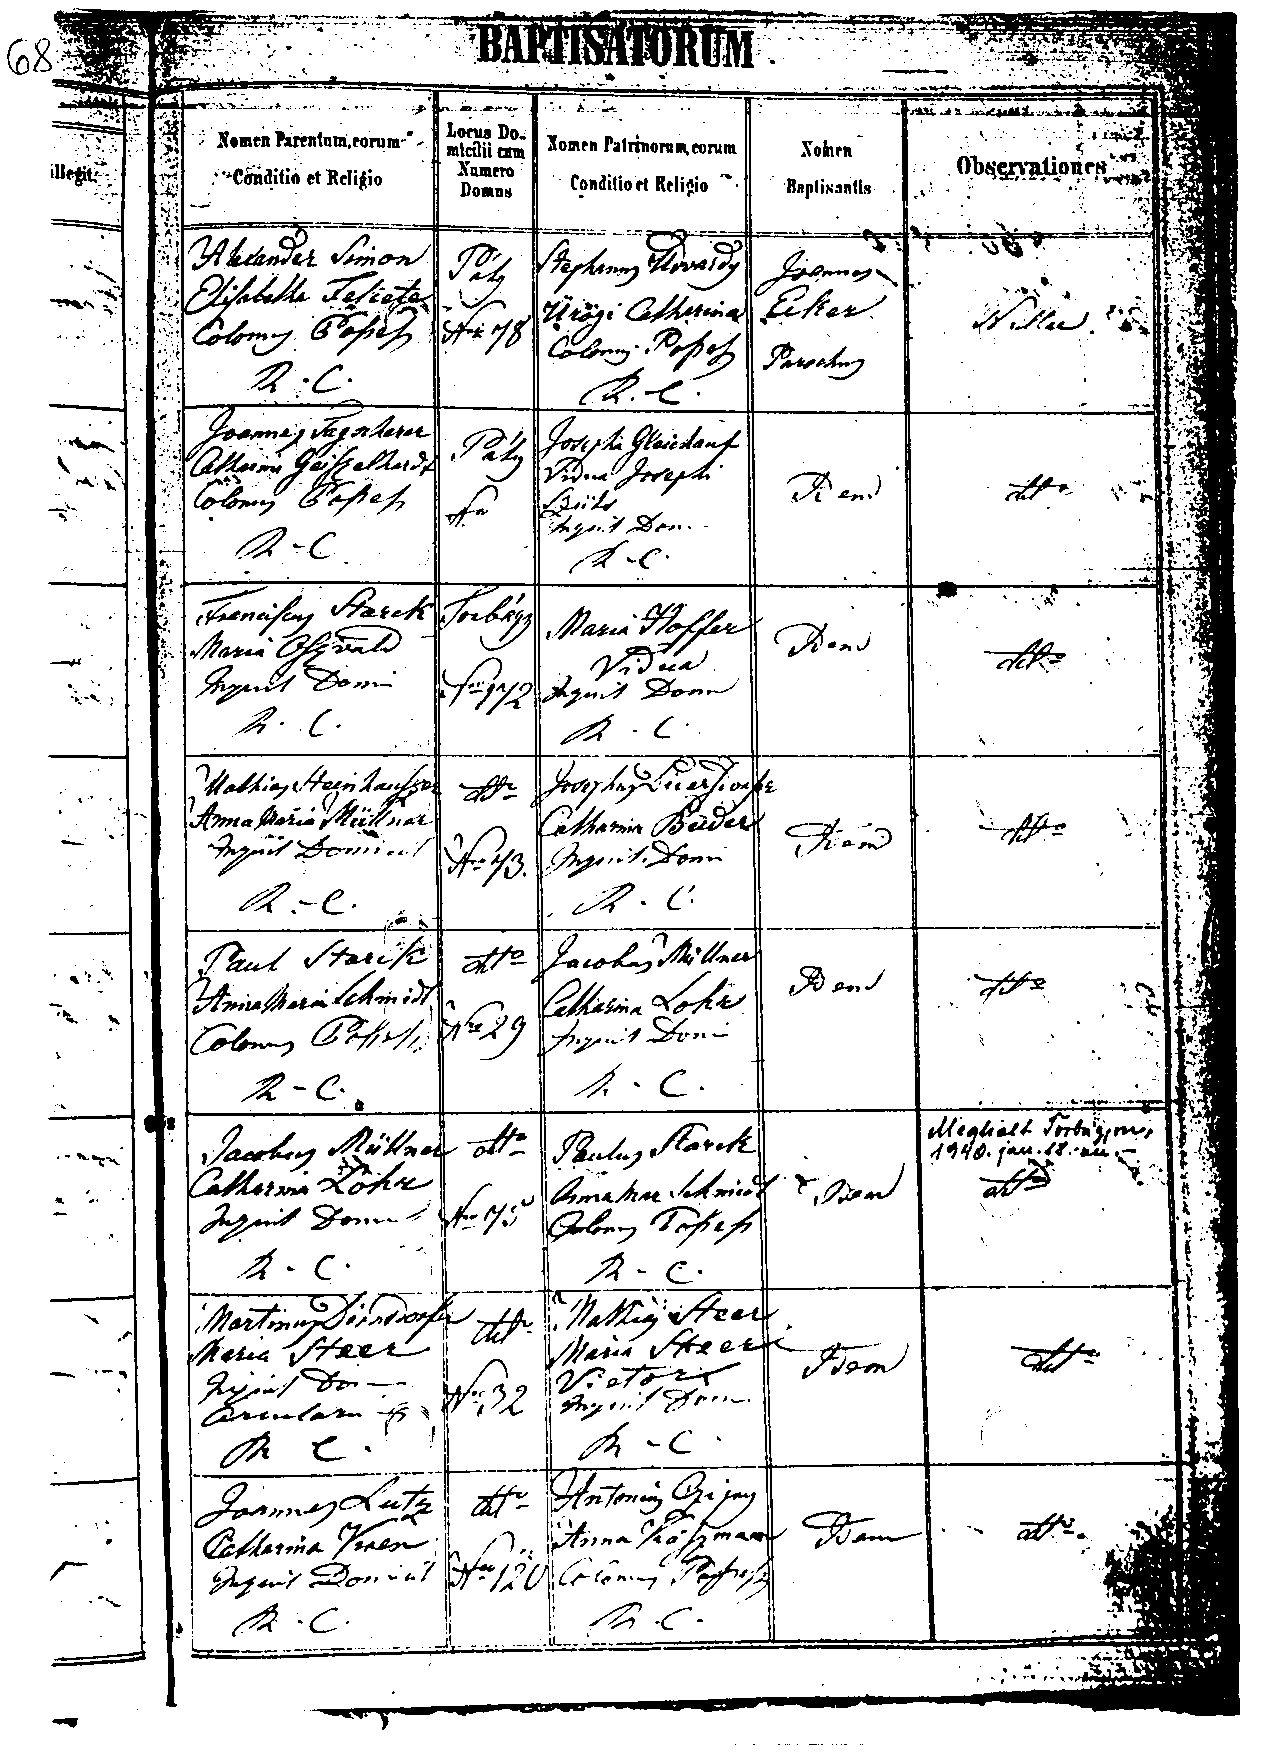 68
BAPTISATORUM
illegit.
Nomen Parentum, eorum
Conditio et Religio
Locus Do-
micilii cum
Numero
Domus
Nomen Patrinorum, eorum
Conditio et Religio
Nomen
Baptisantis
Observationes
Alexander Simon
Elisabetha Fekete
Colonus Possess
R. C.
Páty
Nro 78
Stephanus Udvardy
Ürögi Catharina
Colonus Possess
R. C.
Joannes
Ecker
Parochus
Nullae
Joannes
Catharina Geisselhardt
Colonus Possess
R - C
Páty
Nro
Joseph Gleichauf
Vidua Josephi
Inquil Dom
R - C.
Idem
dtto
Franciscus Starck
Maria Oswald
Inquil Domi
R. C.
Torbágy
Nro 172
Maria Hoffer
Vidua
Inquil Dom
R. C
Idem
dtto
Mathias Steinhauszer
Anna Maria Müllner
Inquil Domicil
R. - C.
dtto
Nro 43.
Josephus
Catharina Beider
Inquil. Domi
R. C.
Idem
dtto
Paul Starck
Anna Maria Schmidt
Colonus Possess
R - C.
dtto
Nro 29
Jacobus Müllner
Catharina Lohr
Inquil Domi
R - C.
Idem
dtto
Jacobus Müllner
Catharina Lohr
Inquil Domi
R - C.
dtto
Nro 75
Paulus Starck
Anna Mar Schmidt
Colonus Possess
R - C.
Idem
Meghalt Torbágyon,
1940. jan. 18.-án.-
dtto
Martinus
Maria Steer
Inquil Do
R C.
dtto
Nro 32
Mathias Steer
Maria Steer
Inquil Dom
R - C.
Idem
dtto
Joannes Lutz
Catharina
Inquil Domicil
R. C.
dtto
Nro 120
Antonius
Anna
Colonus Possess
R. C.
Idem
dtto